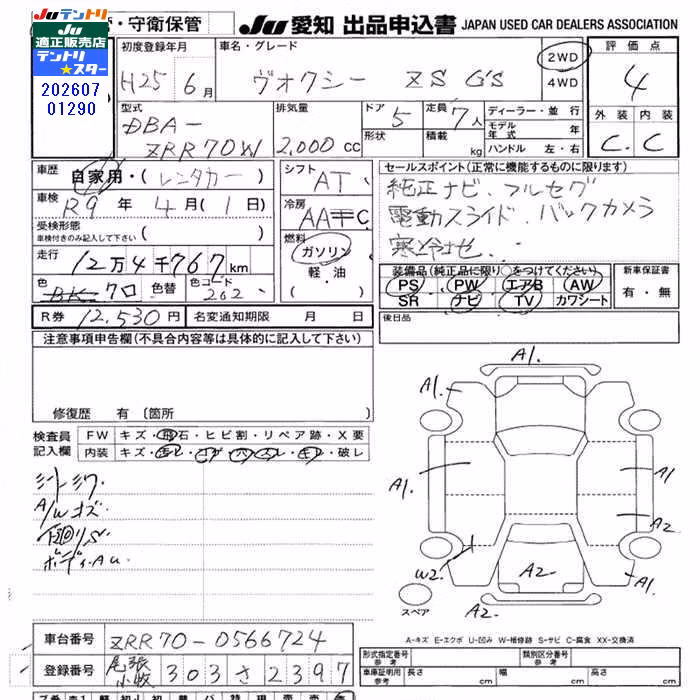 JUテントリ
適正販売店
テントリ
★スター
202607
01290
・守衛保管
JU 愛知 出品申込書 JAPAN USED CAR DEALERS ASSOCIATION
初度登録年月 車名・グレード 評価点
H25 6月 ヴォクシー ZS G'S 2WD 4WD 4
型式 排気量 ドア 定員 ディーラー・並行 外装 内装
DBA- 5 7人 モデル年式 年
ZRR70W 2,000cc 形状 積載 kg ハンドル 左・右 C C
車歴 自家用・(レンタカー) シフト AT セールスポイント(正常に機能するものに限ります)
車検 R9年4月(1日) 冷房 AAC 純正ナビ.フルセグ
受検形態 車検付きのみ記入して下さい ( ) 電動スライド.バックカメラ
走行 12万4千767km 燃料 ガソリン 軽・油 ・( )
装備品(純正品に限り○をつけてください) 新車保証書
色 BK クロ 色替 色コード 202 PS PW エアB AW 有・無
SR ナビ TV カワシート
R券 12,530円 名変通知期限 月 日 後日品
注意事項申告欄(不具合内容等は具体的に記入して下さい)
修復歴 有 〔箇所
検査員 FW キズ・飛石・ヒビ割・リペア跡・X要
記入欄 内装 キズ・汚レ・コゲ・穴・スレ・キレ・破レ
シートシワ
A/Wキズ
下回りS
ボディAU
A1.
A1.
A1. A1
A2
W2. A2 A1.
A2.
スペア
A-キズ E-エクボ U-凹み W-補修跡 S-サビ C-腐食 XX-交換済
車台番号 ZRR70-0566724
登録番号 尾張小牧 303 さ 2397
形式指定番号 参考 類別区分番号 参考
車庫証明記入欄 参考 長さ cm 幅 cm 高さ cm